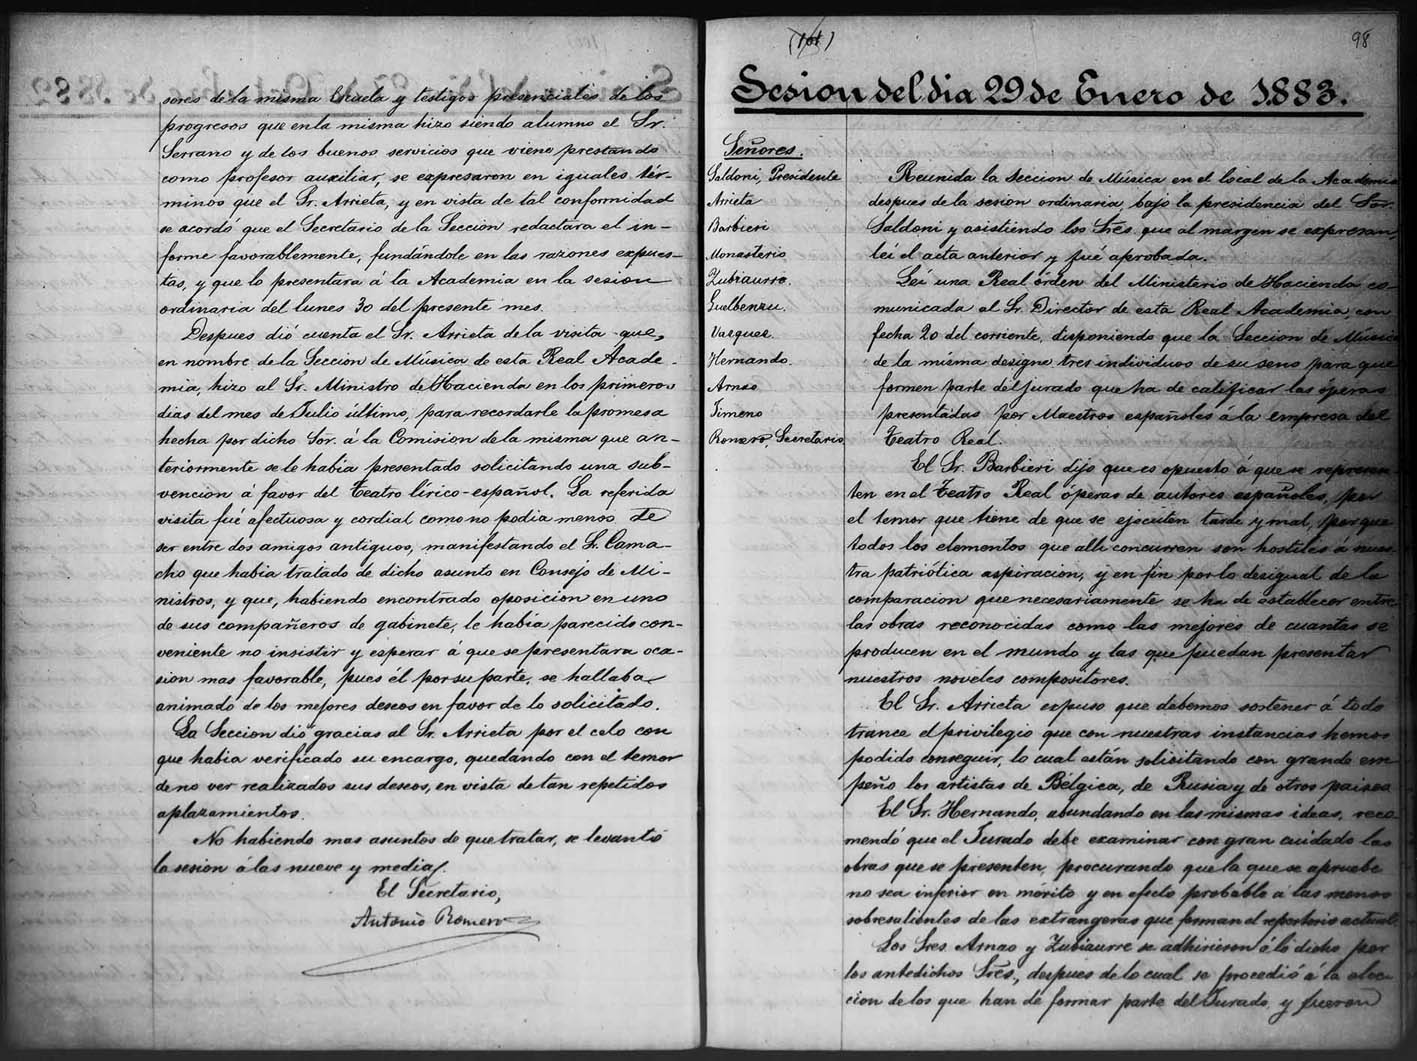 sores de la misma Escuela y testigos presenciales de los
progresos que en la misma hizo siendo alumno el Sr.
Serrano y de los buenos servicios que viene prestando
como profesor auxiliar, se expresaron en iguales tér-
minos que el Sr. Arrieta, y en vista de tal conformidad
se acordó que el Secretario de la Seccion redactara el in-
forme favorablemente, fundándole en las razones expues-
tas, y que lo presentara á la Academia en la sesion
ordinaria del lunes 30 del presente mes.
Despues dió cuenta el Sr. Arrieta de la visita que,
en nombre de la Seccion de Música de esta Real Acade-
mia, hizo al Sr. Ministro de Hacienda en los primeros
dias del mes de Julio último, para recordarle la promesa
hecha por dicho Sor. á la Comision de la misma que an-
teriormente se le habia presentado solicitando una sub-
vencion á favor del Teatro lírico-español. La referida
visita fué afectuosa y cordial como no podia menos de
ser entre dos amigos antiguos, manifestando el Sr. Cama-
cho que habia tratado de dicho asunto en Consejo de Mi-
nistros, y que, habiendo encontrado oposicion en uno
de sus compañeros de gabinete, le habia parecido con-
veniente no insistir y esperar á que se presentara oca-
sion mas favorable, pues él por su parte, se hallaba
animado de los mejores deseos en favor de lo solicitado.
La Seccion dió gracias al Sr. Arrieta por el celo con
que habia verificado su encargo, quedando con el temor
de no ver realizados sus deseos, en vista de tan repetidos
aplazamientos.
No habiendo mas asuntos de que tratar, se levantó
la sesion á las nueve y media.
El Secretario,
Antonio Romero
(101)
98
Sesion del dia 29 de Enero de 1883.
Señores.
Saldoni, Presidente
Arrieta
Barbieri
Monasterio
Zubiaurre.
Guelbenzu.
Vazquez.
Hernando.
Arnao
Jimeno
Romero, Secretario
Reunida la Seccion de Música en el local de la Academia
despues de la sesion ordinaria bajo la presidencia del Sor.
Saldoni y asistiendo los Sres. que al margen se expresan,
leí el acta anterior y fué aprobada.
Leí una Real órden del Ministerio de Hacienda co-
municada al Sr. Director de esta Real Academia, con
fecha 20 del corriente, disponiendo que la Seccion de Música
de la misma designe tres individuos de su seno para que
formen parte del jurado que ha de calificar las óperas
presentadas por Maestros españoles á la empresa del
Teatro Real.
El Sr. Barbieri dijo que es opuesto á que se represen-
ten en el Teatro Real óperas de autores españoles, por
el temor que tiene de que se ejecuten tarde y mal, porque
todos los elementos que alli concurren son hostiles á nues-
tra patriótica aspiracion, y en fin por lo desigual de la
comparacion que necesariamente se ha de establecer entre
las obras reconocidas como las mejores de cuantas se
producen en el mundo y las que puedan presentar
nuestros noveles compositores.
El Sr. Arrieta expuso que debemos sostener á todo
trance el privilegio que con nuestras instancias hemos
podido conseguir, lo cual están solicitando con grande em-
peño los artistas de Bélgica, de Rusia y de otros paises
El Sr. Hernando, abundando en las mismas ideas, reco-
mendó que el Jurado debe examinar con gran cuidado las
obras que se presenten, procurando que la que se apruebe
no sea inferior en mérito y en efecto probable a las menos
sobresalientes de las extrangeras que forman el repertorio actual.
Los Sres. Arnao y Zubiaurre se adhirieron á lo dicho por
los antedichos Sres., despues de lo cual se procedió á la elec-
cion de los que han de formar parte del Jurado, y fueron